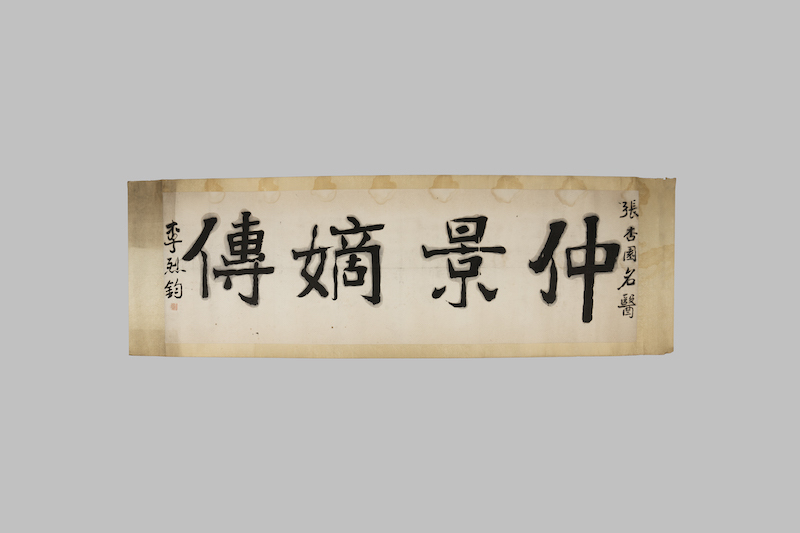 張杏園名醫
仲景嫡傳
李烈鈞